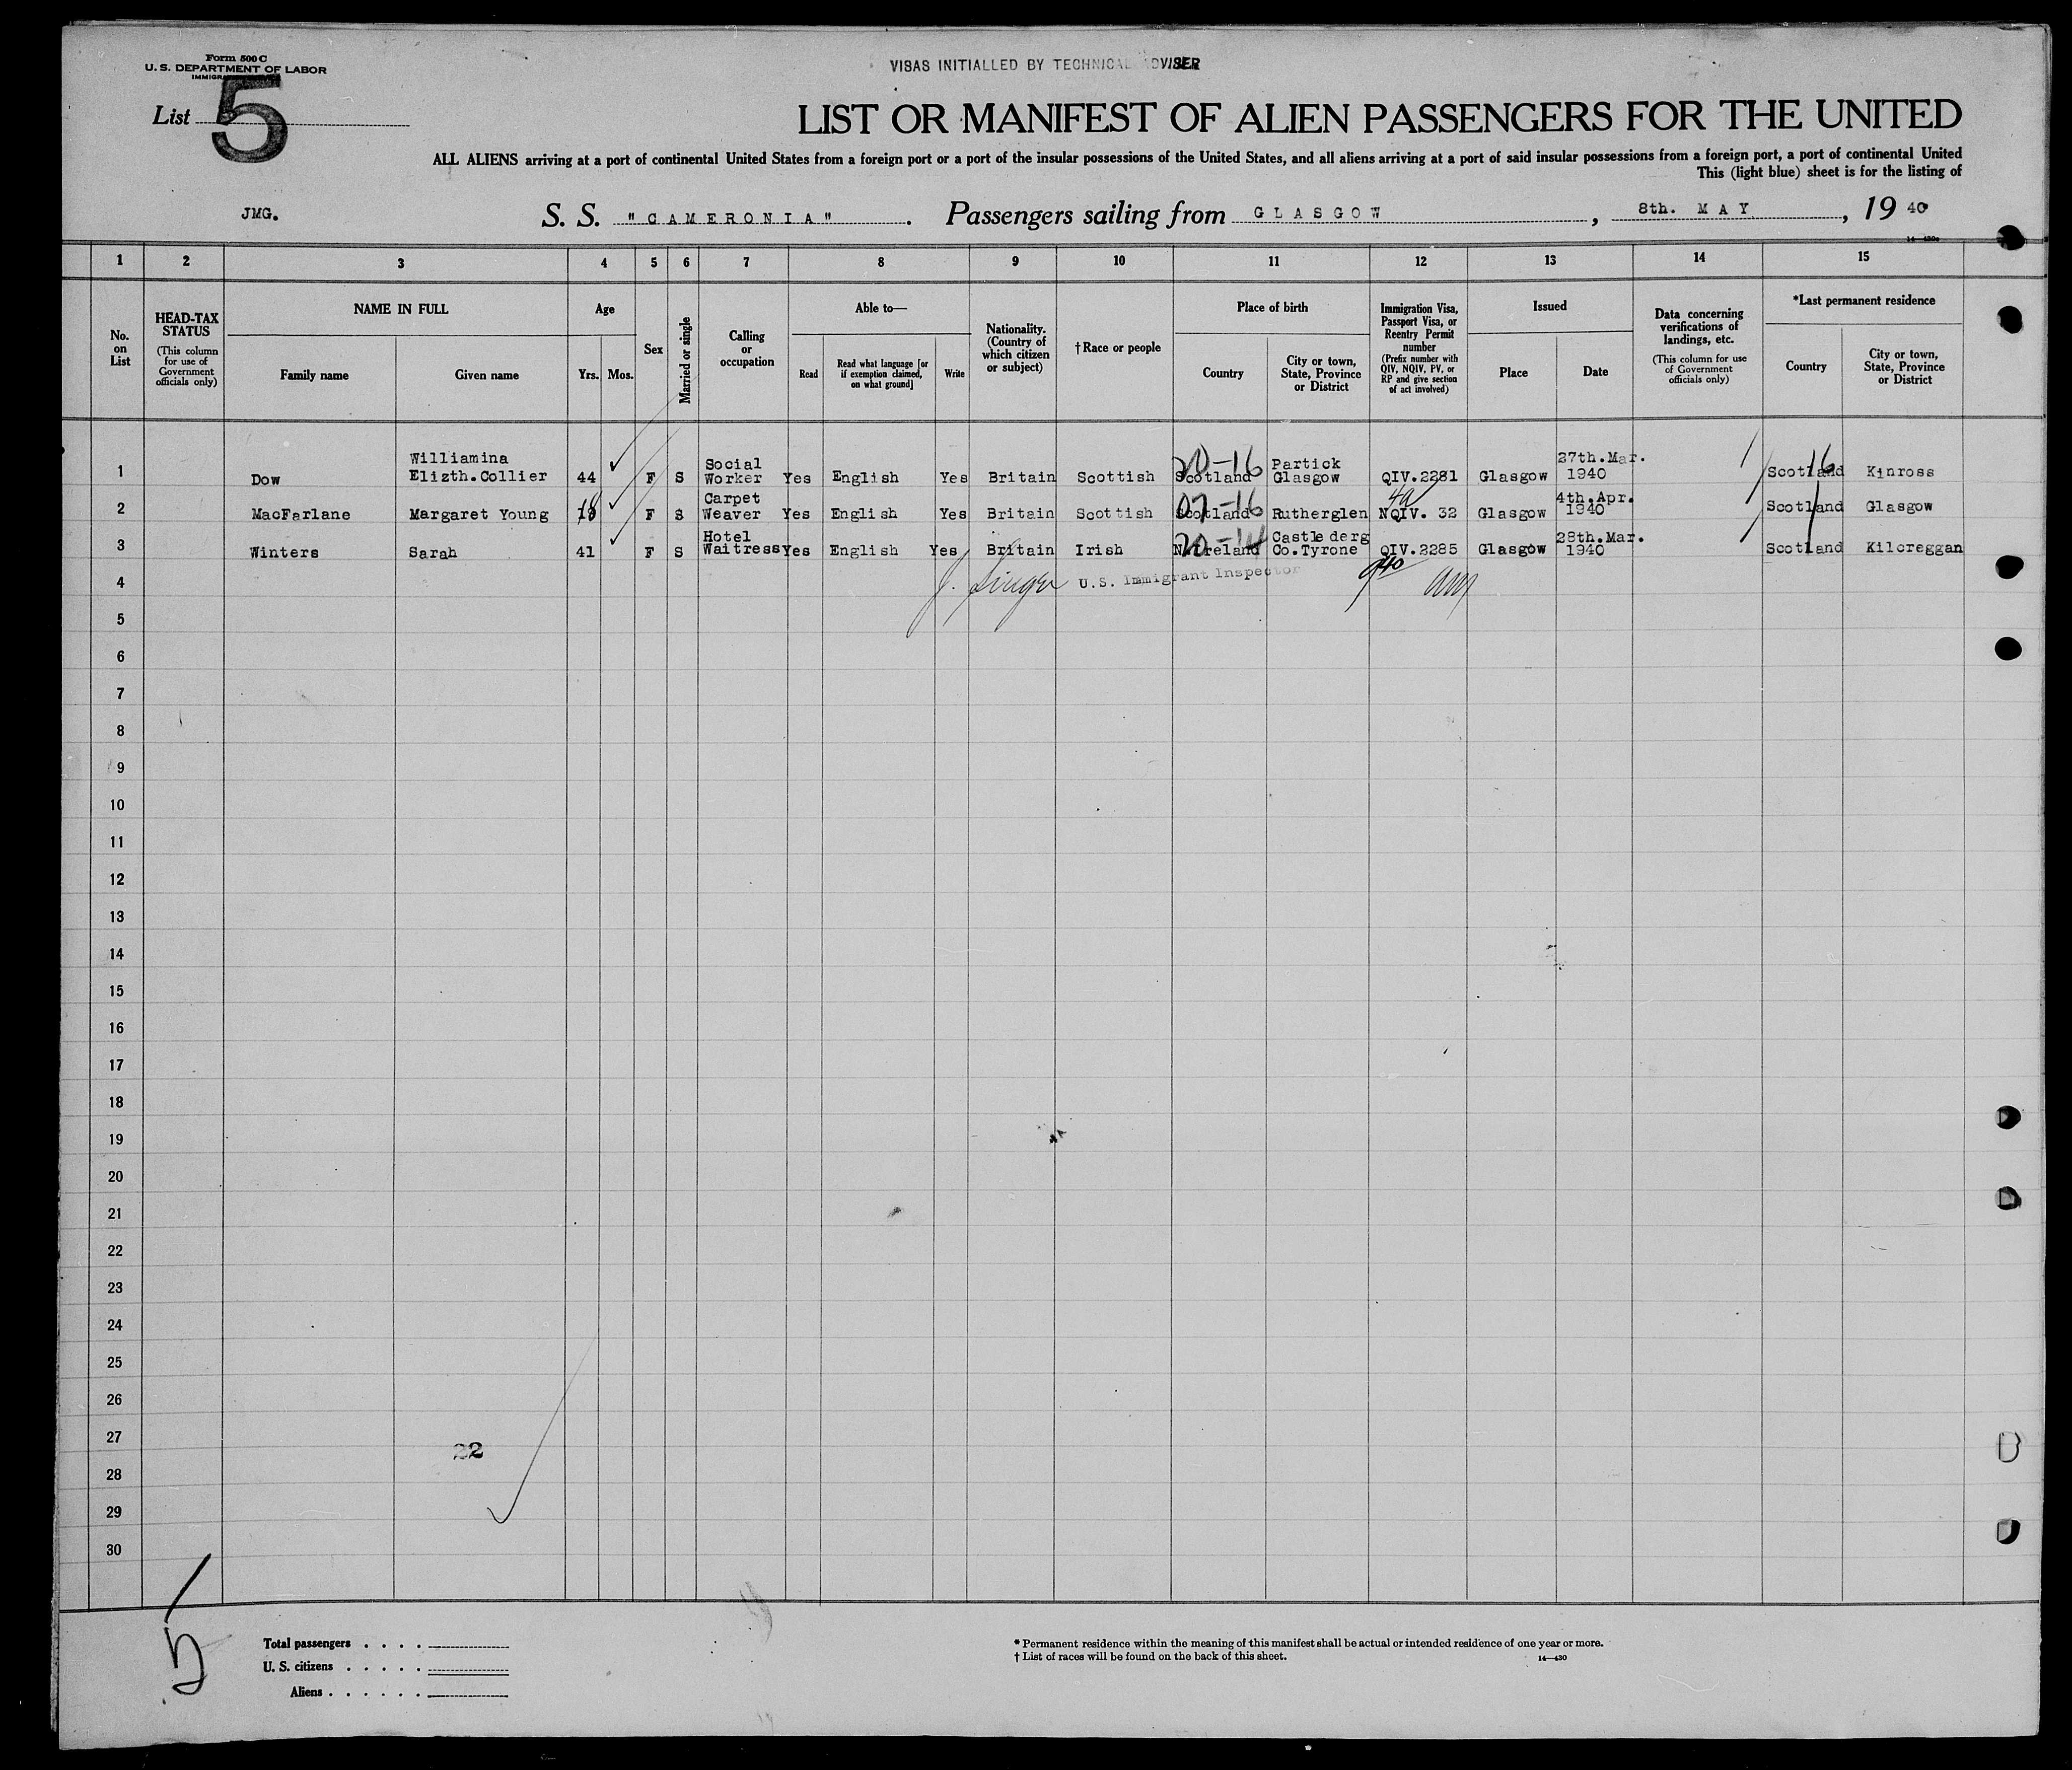 Form 500 C
U. S. DEPARTMENT OF LABOR
List 5
VISAS INITIALLED BY TECHNICAL ADVISER
LIST OR MANIFEST OF ALIEN PASSENGERS FOR THE UNITED
ALL ALIENS arriving at a port of continental United States from a foreign port or a port of the insular possessions of the United States, and all aliens arriving at a port of said insular possessions from a foreign port, a port of continental United
This (light blue) sheet is for the listing of
JMG. S. S. "CAMERONIA". Passengers sailing from GLASGOW, 8th. MAY, 19 40
1 2 3 4 5 6 7 8 9 10 11 12 13 14 15
No. on List
HEAD-TAX STATUS
(This column for use of Government officials only)
NAME IN FULL
Family name Given name
Age
Yrs. Mos.
Sex
Married or single
Calling or occupation
Able to—
Read
Read what language [or if exemption claimed, on what ground]
Write
Nationality. (Country of which citizen or subject)
†Race or people
Place of birth
Country
City or town, State, Province or District
Immigration Visa, Passport Visa, or Reentry Permit number
(Prefix number with QIV, NQIV, PV, or RP and give section of act involved)
Issued
Place Date
Data concerning verifications of landings, etc.
(This column for use of Government officials only)
*Last permanent residence
Country
City or town, State, Province or District
1 Dow Williamina Elizth.Collier 44 F S Social Worker Yes English Yes Britain Scottish Scotland 20-16 Partick Glasgow QIV.2281 Glasgow 27th.Mar. 1940 Scotland 16 Kinross
2 MacFarlane Margaret Young F S Carpet Weaver Yes English Yes Britain Scottish Scotland 07-16 Rutherglen NQIV. 32 4a Glasgow 4th.Apr. 1940 Scotland Glasgow
3 Winters Sarah 41 F S Hotel Waitress Yes English Yes Britain Irish N.Ireland 20-14 Castlederg Co.Tyrone QIV.2285 Glasgow 28th.Mar. 1940 Scotland Kilcreggan
4 J. Singer U.S. Immigrant Inspector
5
6
7
8
9
10
11
12
13
14
15
16
17
18
19
20
21
22
23
24
25
26
27
22
28
29
30
5
Total passengers
U. S. citizens
Aliens
* Permanent residence within the meaning of this manifest shall be actual or intended residence of one year or more.
† List of races will be found on the back of this sheet.
14—430